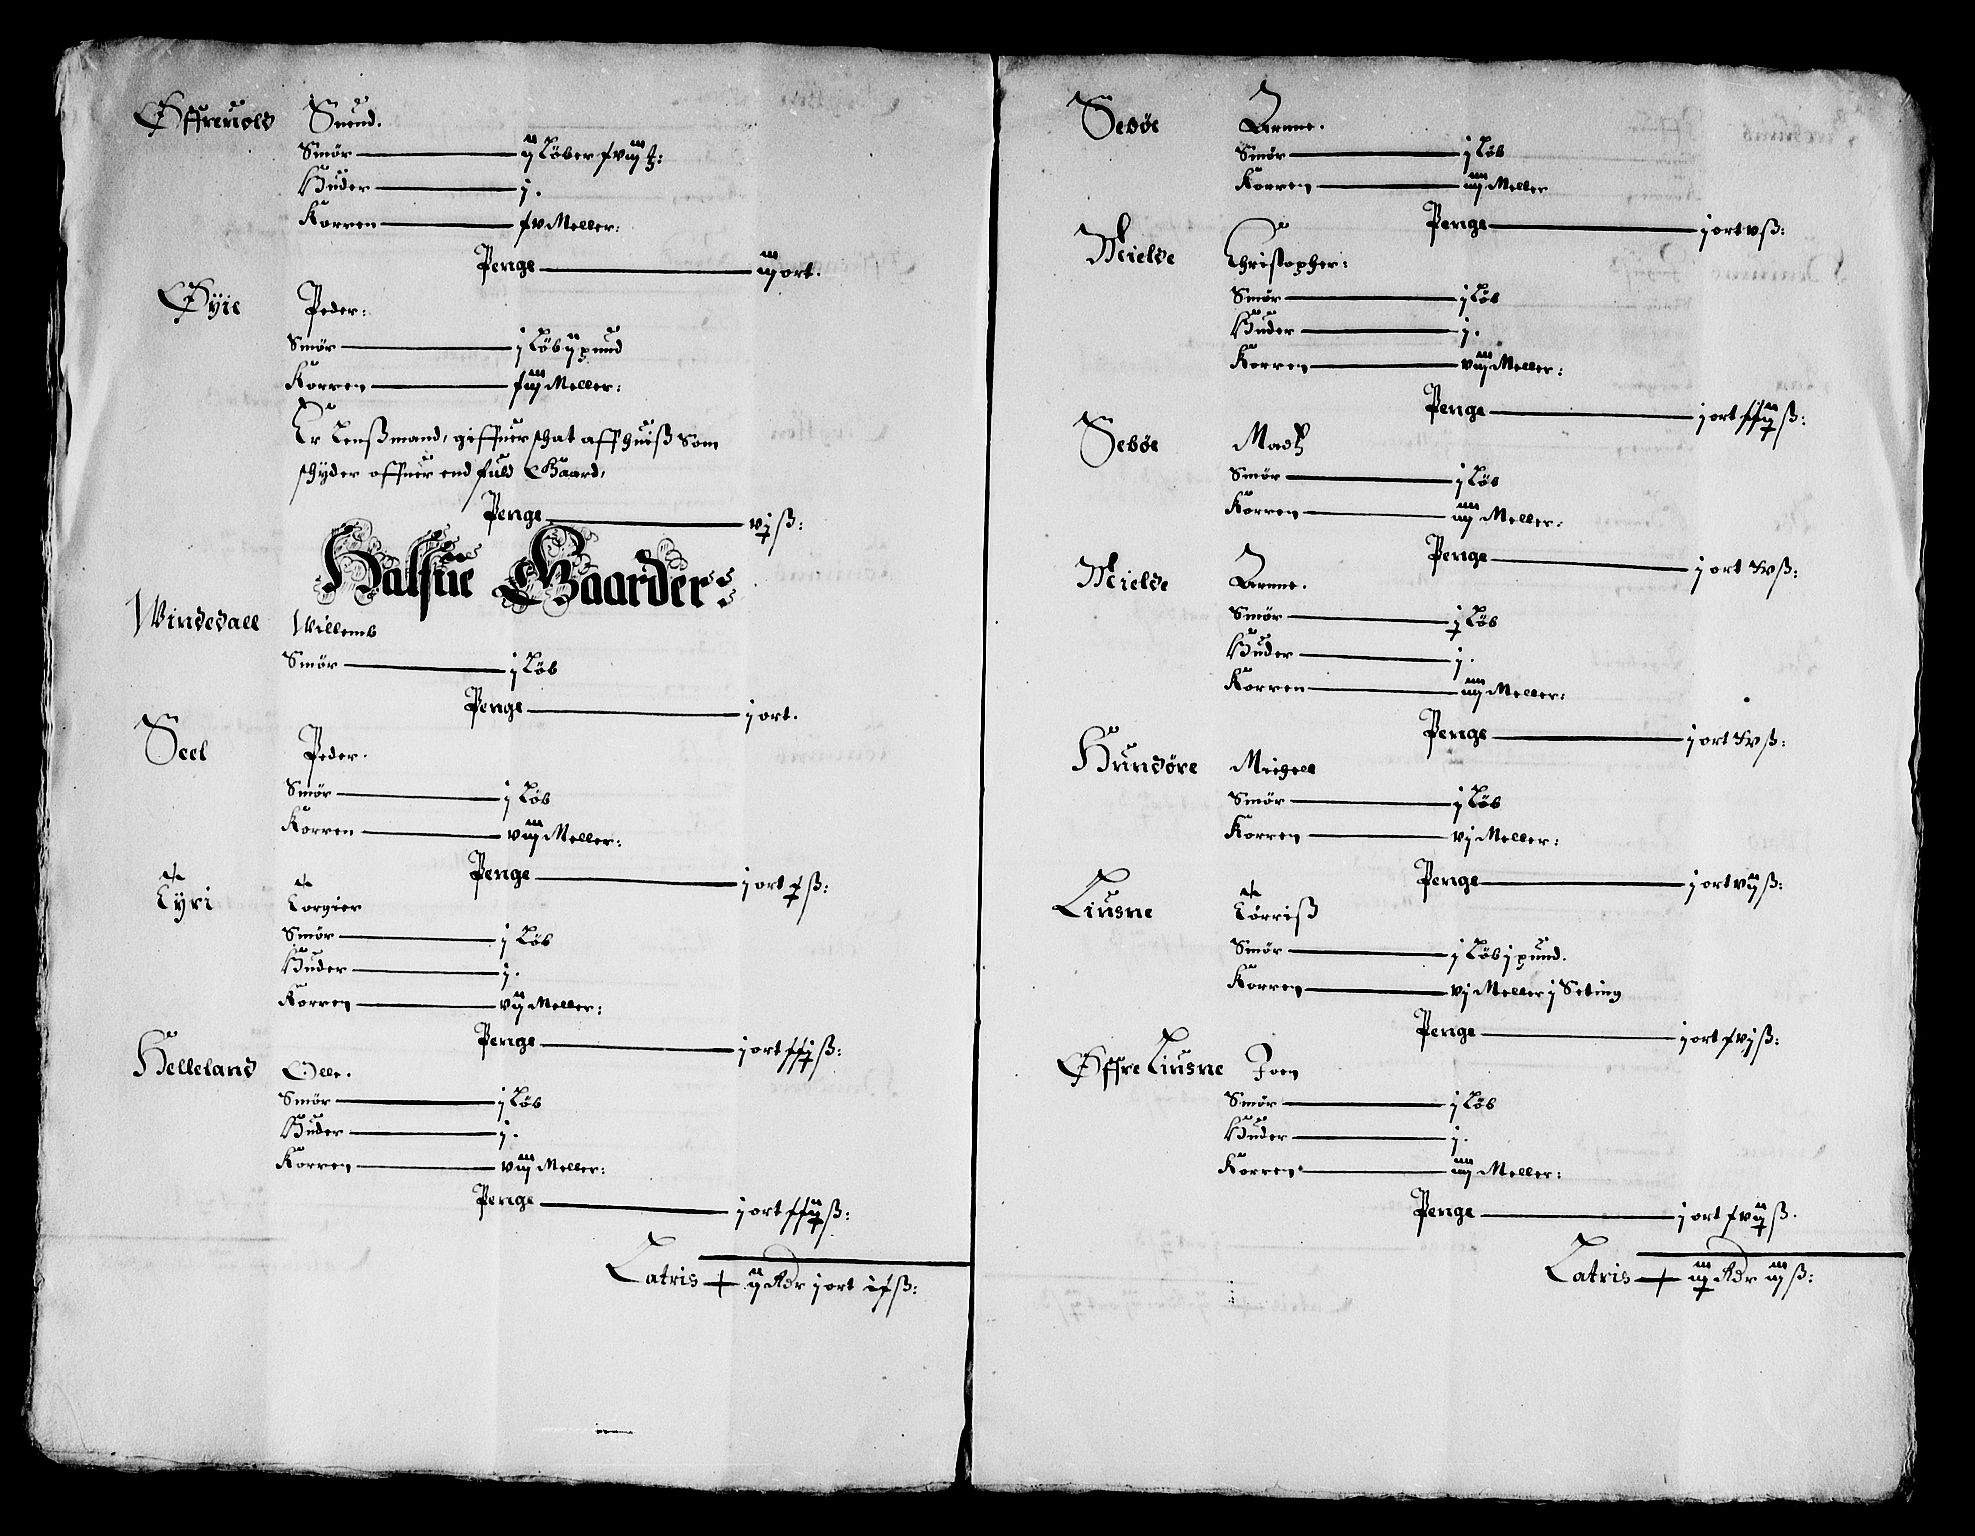 Øffreuold Suend.
Smør ij Løber xviij ℔:
Huder j.
Korren xv Meller:
Penge iij ort.
Øyie Peder:
Smør j Løb ij pund
Korren xiij Meller:
Er Lenßmand, giffuer schat aff huiß Som
schyder offuer end fuld Gaard,
Penge vj ß:
Halfue Gaarder:
Windedall Willemb
Smør j Løb
Penge j ort.
Seel Peder.
Smør j Løb
Korren viij Meller:
Penge j ort x ß:
Tyri Torgier
Smør j Løb
Huder j.
Korren vij Meller:
Penge j ort xxj ß:
Helleland Olle.
Smør j Løb
Huder j.
Korren viij Meller:
Penge j ort xxij ß:
Latris ij Rdr j ort ix ß:
Sebøe Arnne.
Smør j Løb
Korren iiij Meller
Penge j ort v ß:
Mielde Christopher:
Smør j Løb
Huder j.
Korren viij Meller:
Penge j ort xxij ß:
Sebøe Madtz
Smør j Løb
Korren iiij Meller:
Penge j ort xv ß:
Mielde Arnne.
Smør j Løb
Huder j.
Korren iiij Meller:
Penge j ort xv ß:
Hundøre Michell
Smør j Løb
Korren vj Meller:
Penge j ort vij ß:
Liusne Tørriß
Smør j Løb j pund.
Korren vj Meller j Seting
Penge j ort xvj ß:
Øffre Liusne Joen
Smør j Løb
Huder j.
Korren iiij Meller:
Penge j ort xvij ß.
Latris iij Rdr iij ß: